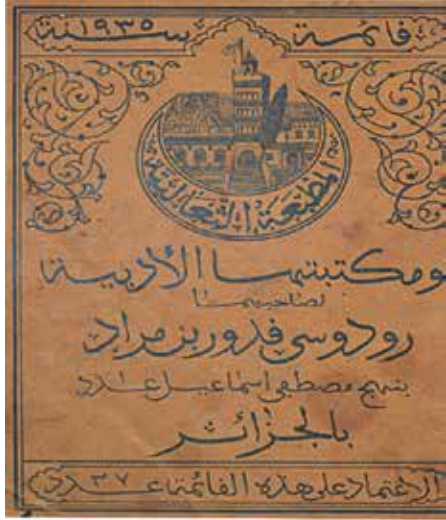 قائمة سنة ١٩٣٥
المطبعة الثعالبية
ومكتبتها الأدبية
لصاحبها
رودوسي قدور بن مراد
بنهج مصطفى اسماعيل عدد
بالجزائر
الاعتماد على هذه القائمة عدد ٣٧